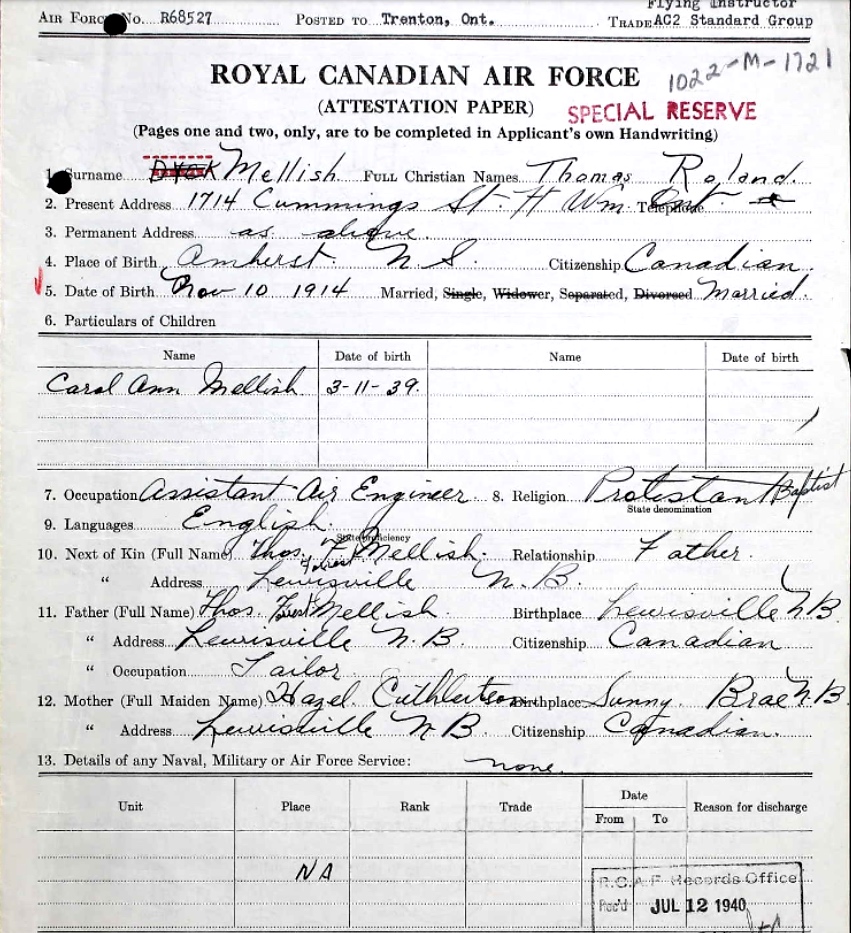 Flying Instructor
AIR FORCE No. R68527 POSTED TO Trenton, Ont. TRADE AC2 Standard Group
1022-M-1721
ROYAL CANADIAN AIR FORCE
(ATTESTATION PAPER) SPECIAL RESERVE
(Pages one and two, only, are to be completed in Applicant's own Handwriting)
1. Surname Mellish FULL Christian Names Thomas Roland.
2. Present Address 1714 Cummings St. Ft Wm. Ont. Telephone
3. Permanent Address as above.
4. Place of Birth Amherst. N.S. Citizenship Canadian.
5. Date of Birth Nov 10 1914 Married, Single, Widower, Separated, Divorced Married.
6. Particulars of Children
Name Date of birth Name Date of birth
Carol Ann Mellish 3-11-39.
7. Occupation Assistant Air Engineer 8. Religion Protestant Baptist
State denomination
9. Languages English.
State proficiency
10. Next of Kin (Full Name) Thos. F. Mellish. Relationship Father.
" Address Lewisville N.B.
11. Father (Full Name) Thos. Mellish. Birthplace Lewisville N.B.
" Address Lewisville N.B. Citizenship Canadian
" Occupation Tailor
12. Mother (Full Maiden Name) Hazel Cuthbertson Birthplace Sunny Brae N.B.
" Address Lewisville N.B. Citizenship Canadian.
13. Details of any Naval, Military or Air Force Service: none.
Unit Place Rank Trade Date Reason for discharge
From To
NA
R.C.A.F. Records Office
Rec'd JUL 12 1940